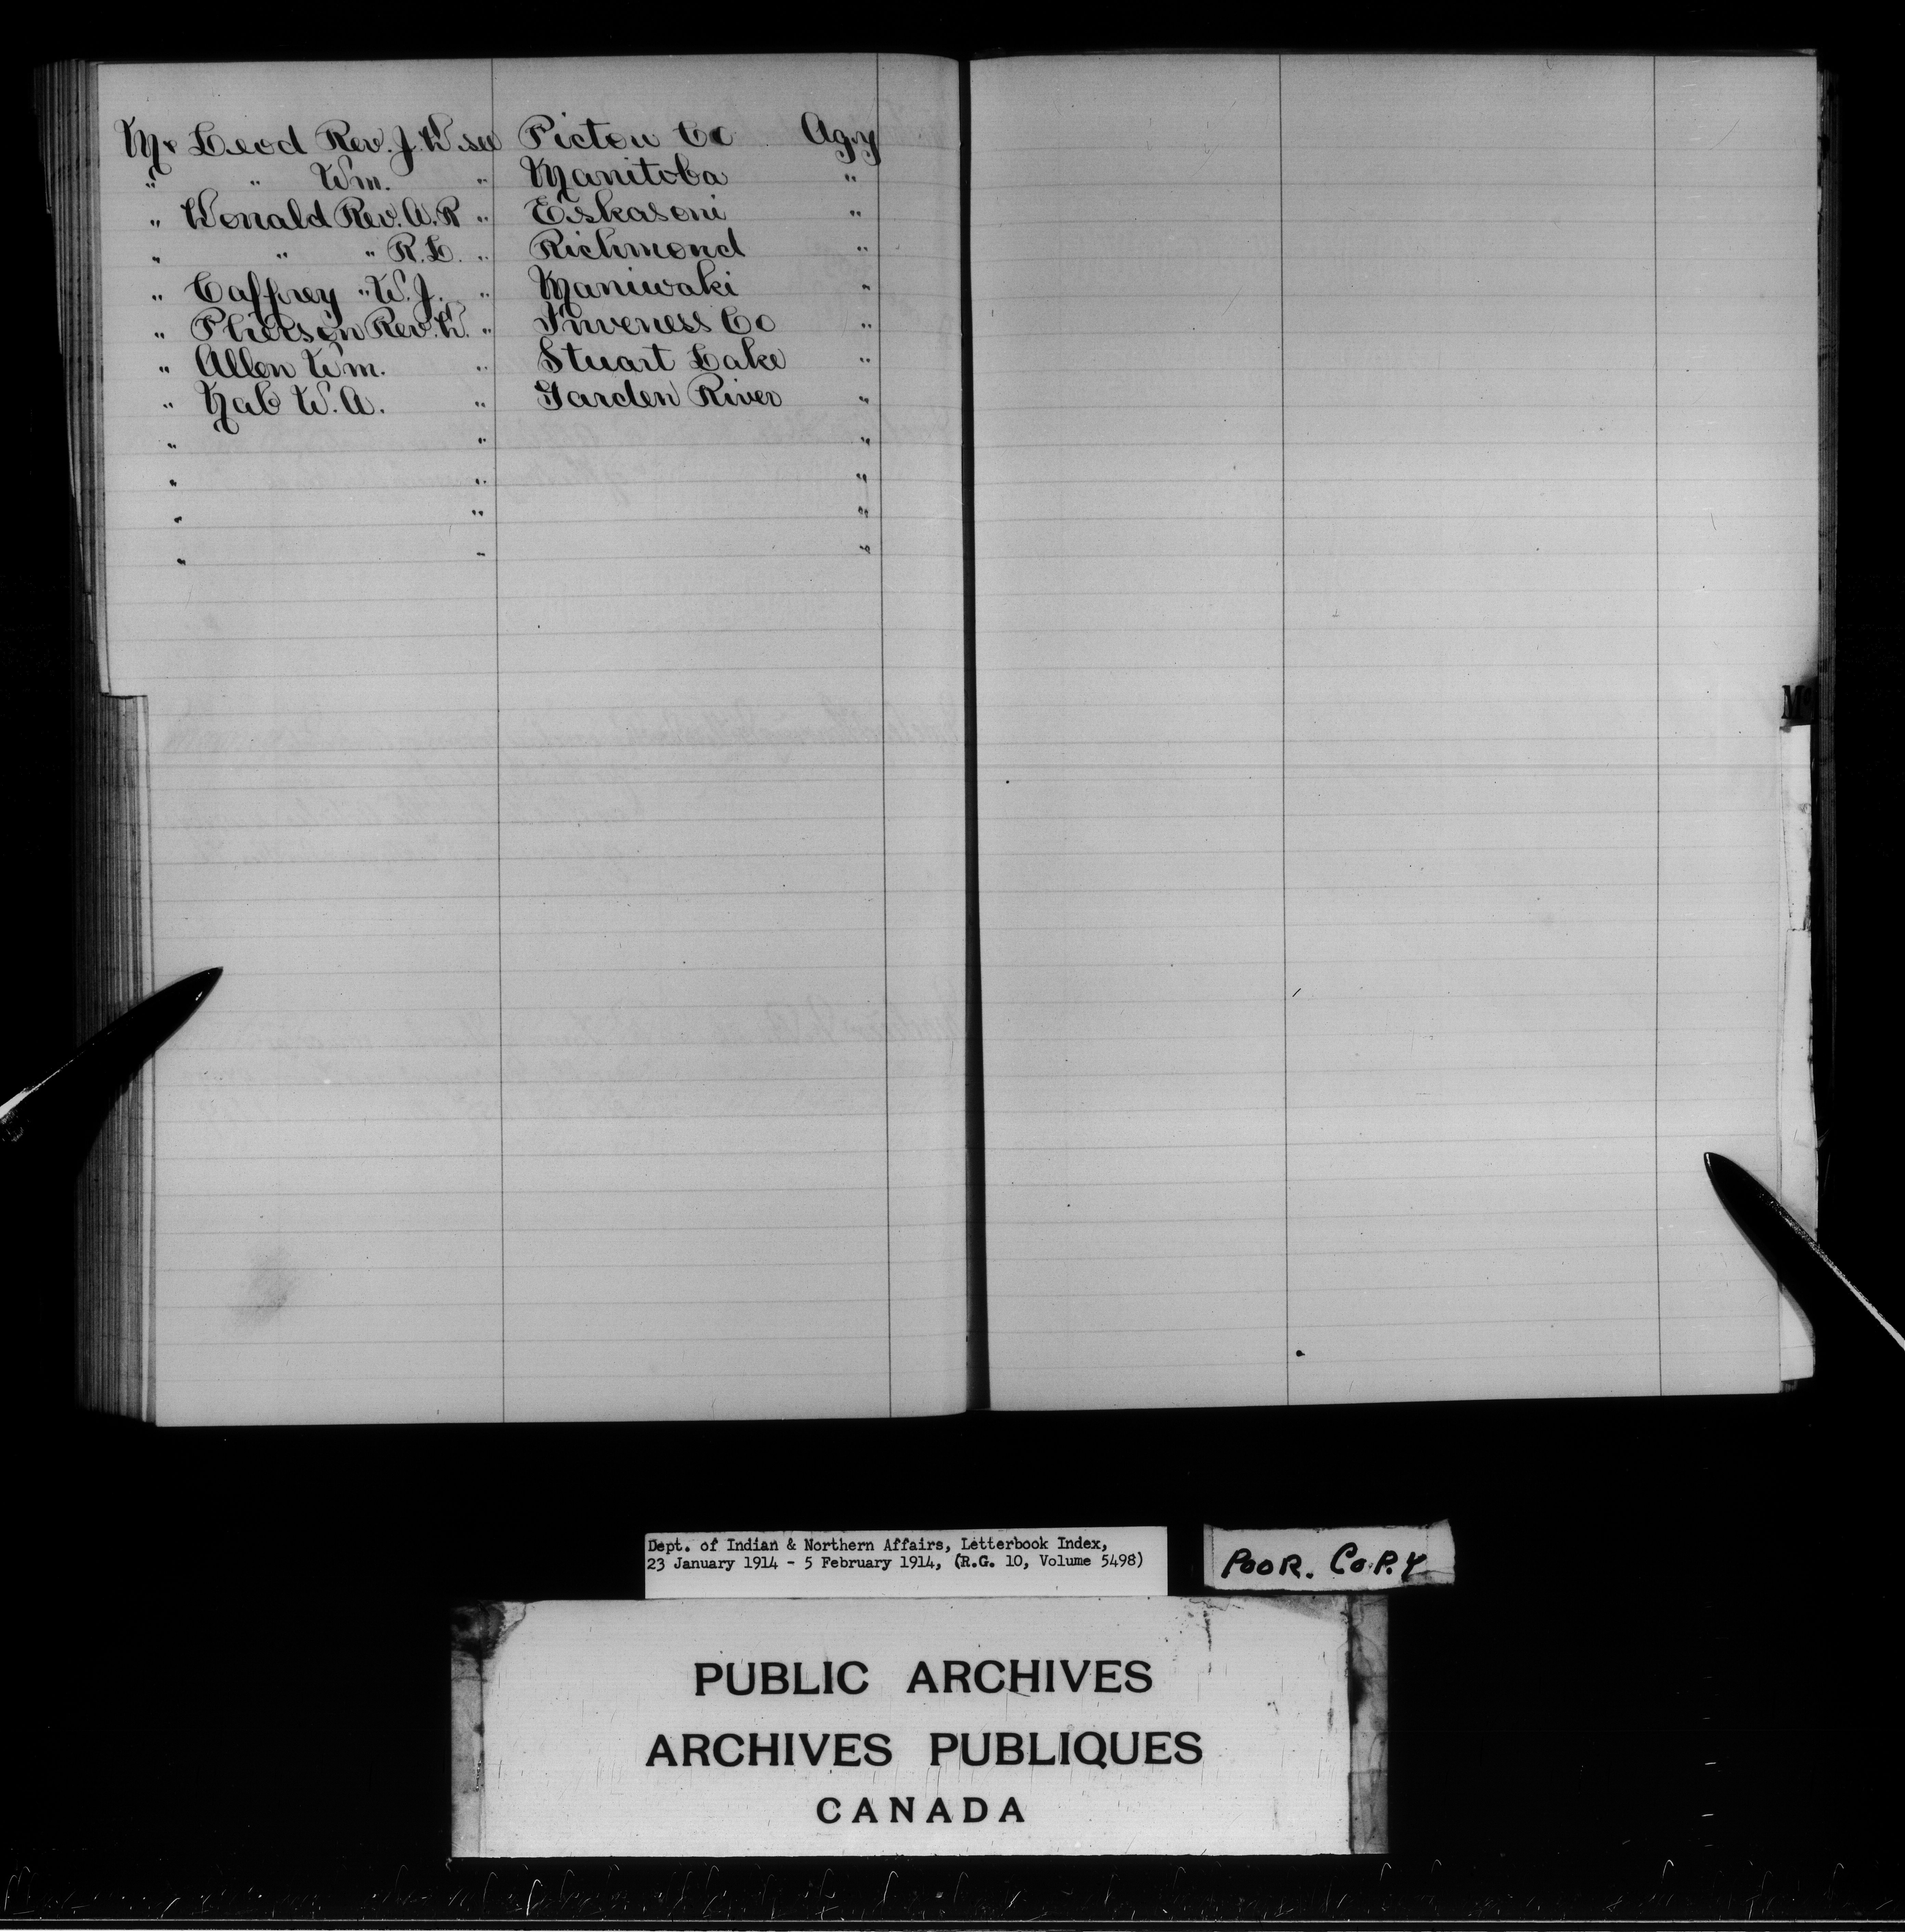 Mc Leod Rev. J. D. see Pictou Co Agy
" " Wm. " Manitoba "
" Donald Rev. A. R " Eskasoni "
" " " R. L. " Richmond "
" Caffrey " W. J. " Maniwaki "
" Pherson Rev. D. " Inveness Co "
" Allen Wm. " Stuart Lake "
" Nab W. A. " Garden River "
" " "
" " "
" " "
" " "
Mc
Dept. of Indian & Northern Affairs, Letterbook Index,
23 January 1914 - 5 February 1914, (R.G. 10, Volume 5498)
POOR. COPY
PUBLIC ARCHIVES
ARCHIVES PUBLIQUES
CANADA